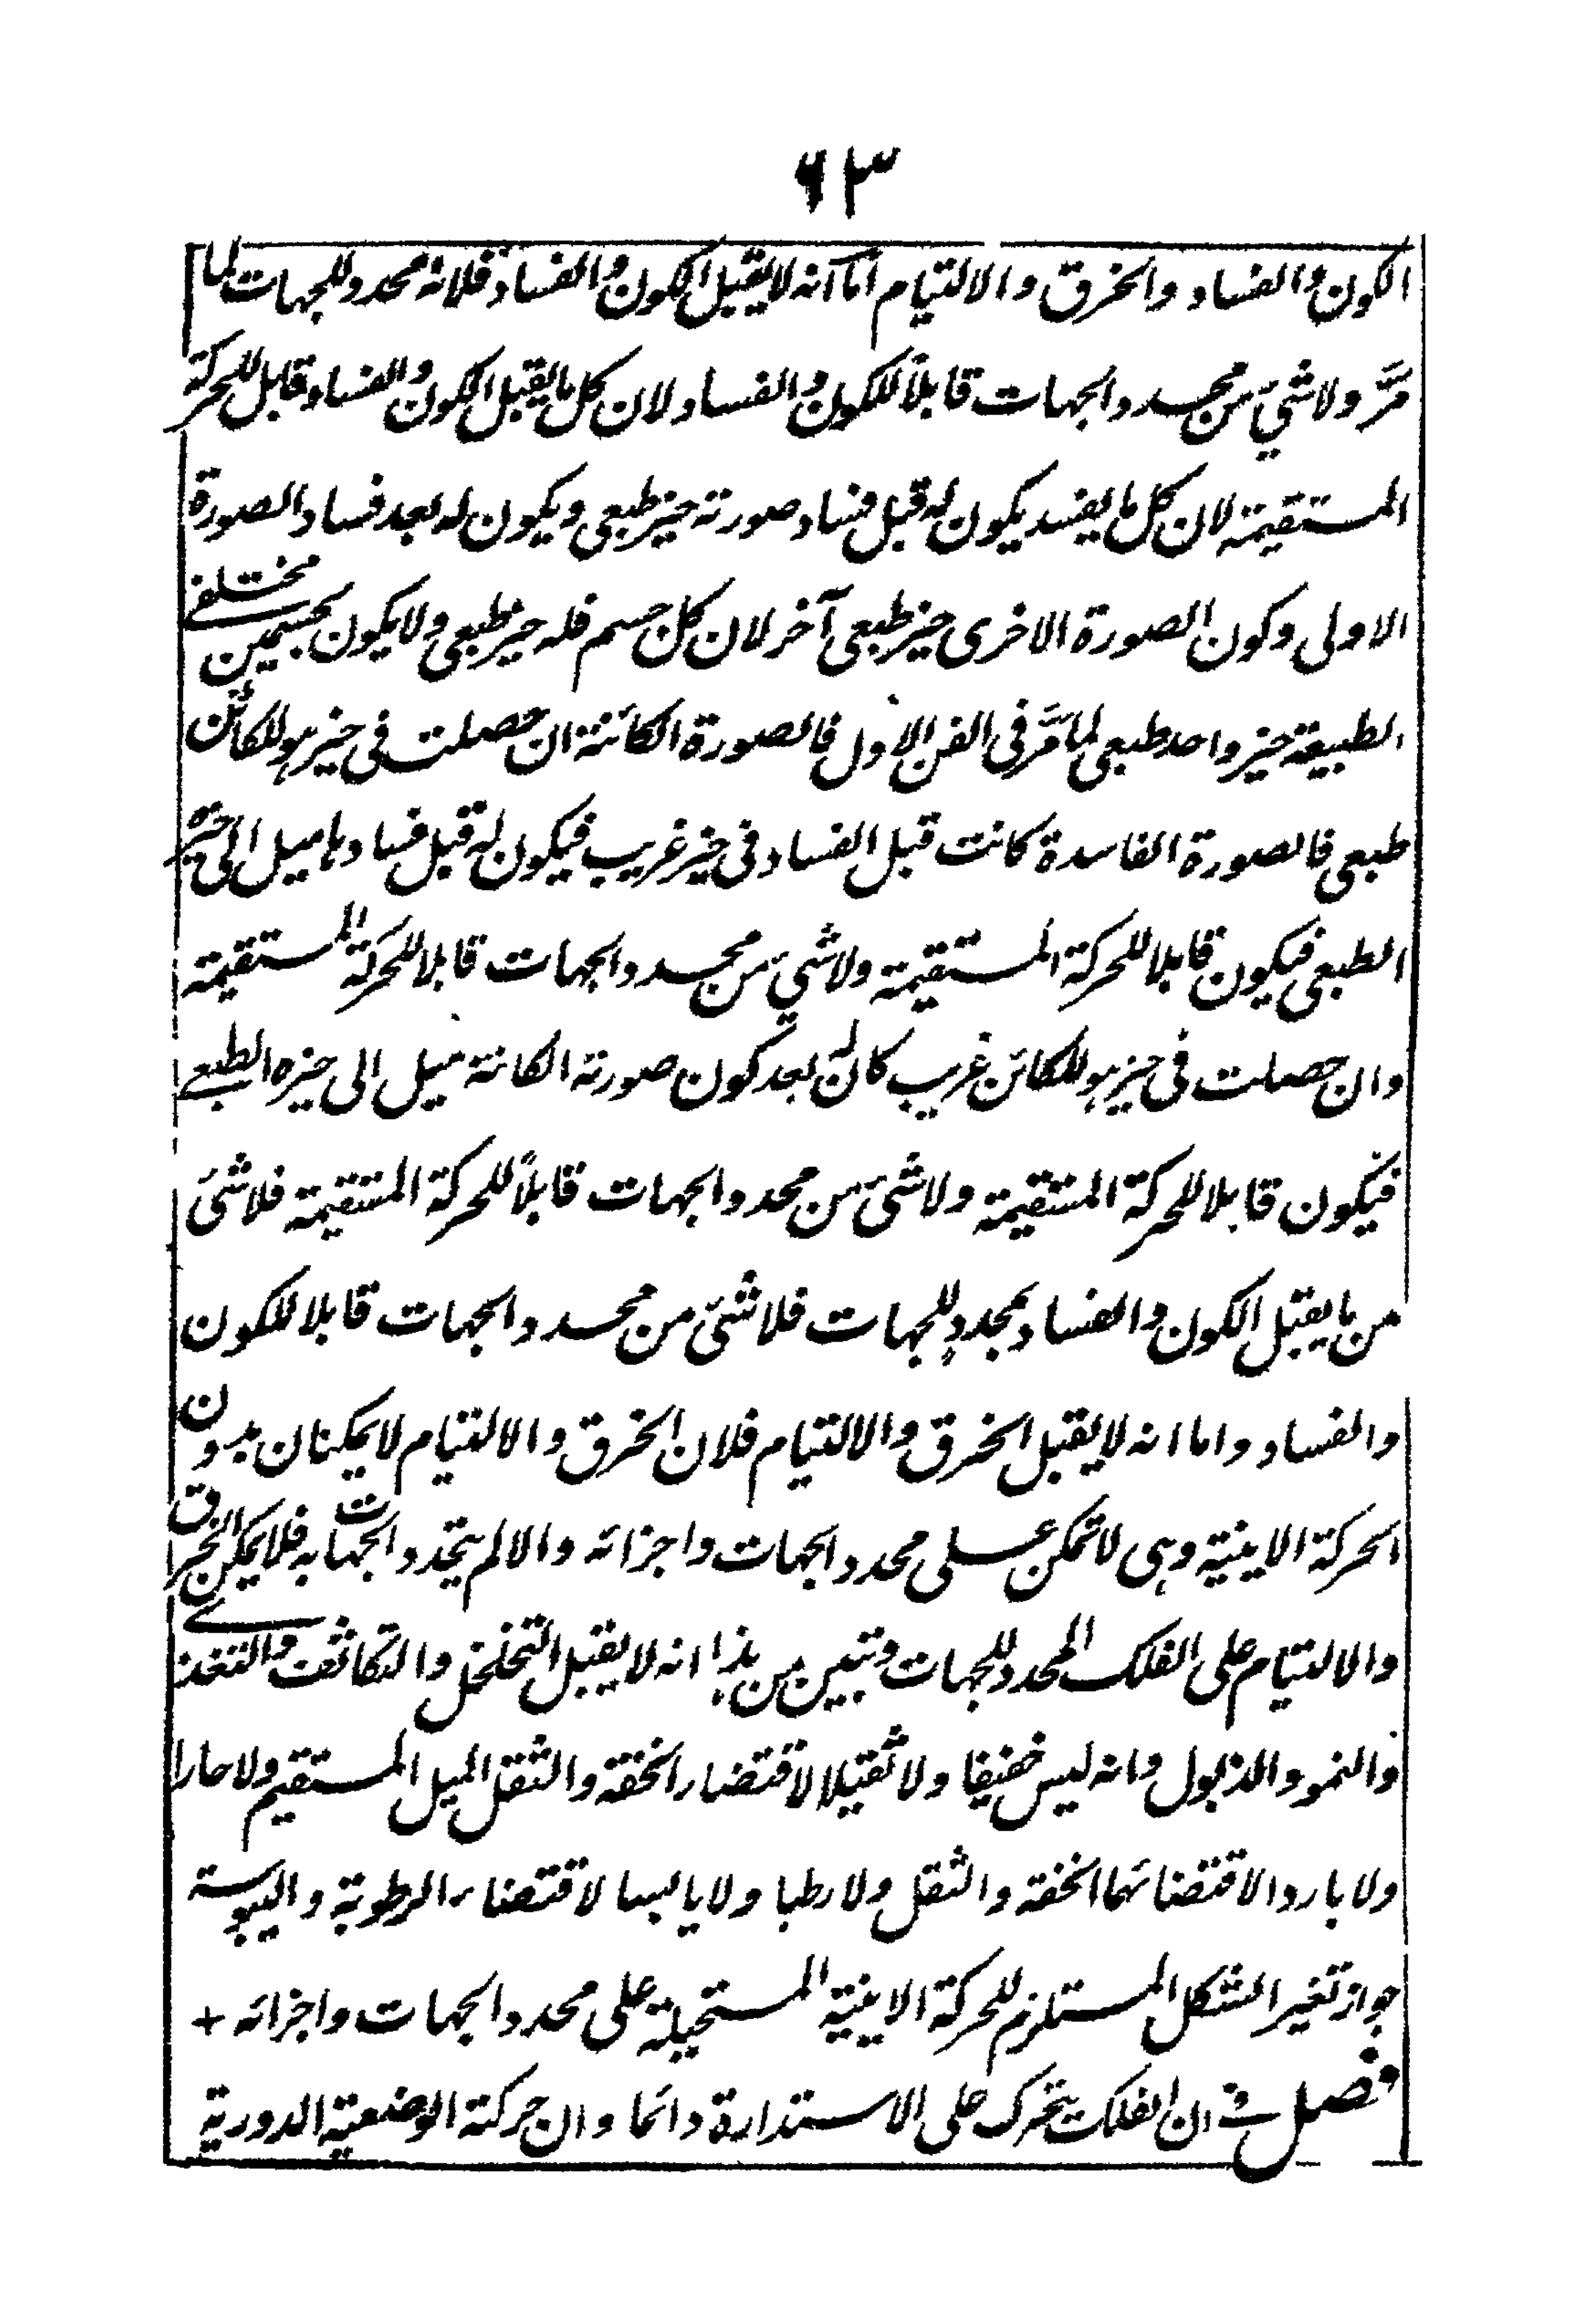 ٦٣
الكون والفساد والخرق والالتيام اما انه لا يقبل الكون والفساد فلانه محدد للجهات لما
مرَّ ولا شيَ من محدد الجهات قابلاً للكون والفساد لان كل ما يقبل الكون والفساد قابل للحركة
المستقيمة لان كل ما يفسد يكون له قبل فساد صورته حيز طبعى ويكون له بعد فساد الصورة
الاولى وكون الصورة الاخرى حيز طبعى آخر لان كل جسم فله حيز طبعى ولا يكون لجسمين مختلفى
الطبيعة حيز واحد طبعى لما مَرَّ فى الفن الاول فالصورة الكائنة ان حصلت فى حيز هو للكائن
طبعى فالصورة الفاسدة كانت قبل الفساد فى حيز غريب فيكون له قبل فسادها ميل الى حيزه
الطبعى فيكون قابلا للحركة المستقيمة ولا شيَ من محدد الجهات قابلا للحركة المستقيمة
وان حصلت فى حيز هو للكائن غريب كان له بعد كون صورته الكائنة ميل الى حيزه الطبعى
فيكون قابلا للحركة المستقيمة ولا شىَ من محدد الجهات قابلاً للحركة المستقيمة فلا شىَ
من ما يقبل الكون والفساد بمحدد للجهات فلا شىَ من محدد الجهات قابلا للكون
والفساد واما انه لا يقبل الخرق والالتيام فلان الخرق والالتيام لا يمكنان بدون
الحركة الاينية وهى لا تمكن على محدد الجهات واجزائه والا لم يتحدد الجهات به فلا يمكن الخرق
والالتيام على الفلك المحدد للجهات وتبين من هذا انه لا يقبل التخلخل والتكاثف والتغذى
والنمو والذبول وانه ليس خفيفا ولا ثقيلا لاقتضاء الخفة والثقل الميل المستقيم ولا حارا
ولا باردا لاقتضائهما الخفة والثقل ولا رطبا ولا يابسا لاقتضاء الرطوبة واليبوسة
جواز تغير الشكل المستلزم للحركة الاينية المستحيلة على محدد الجهات واجزائه +
فصل فى ان الفلك يتحرك على الاستدارة دائما وان حركته الوضعية الدورية